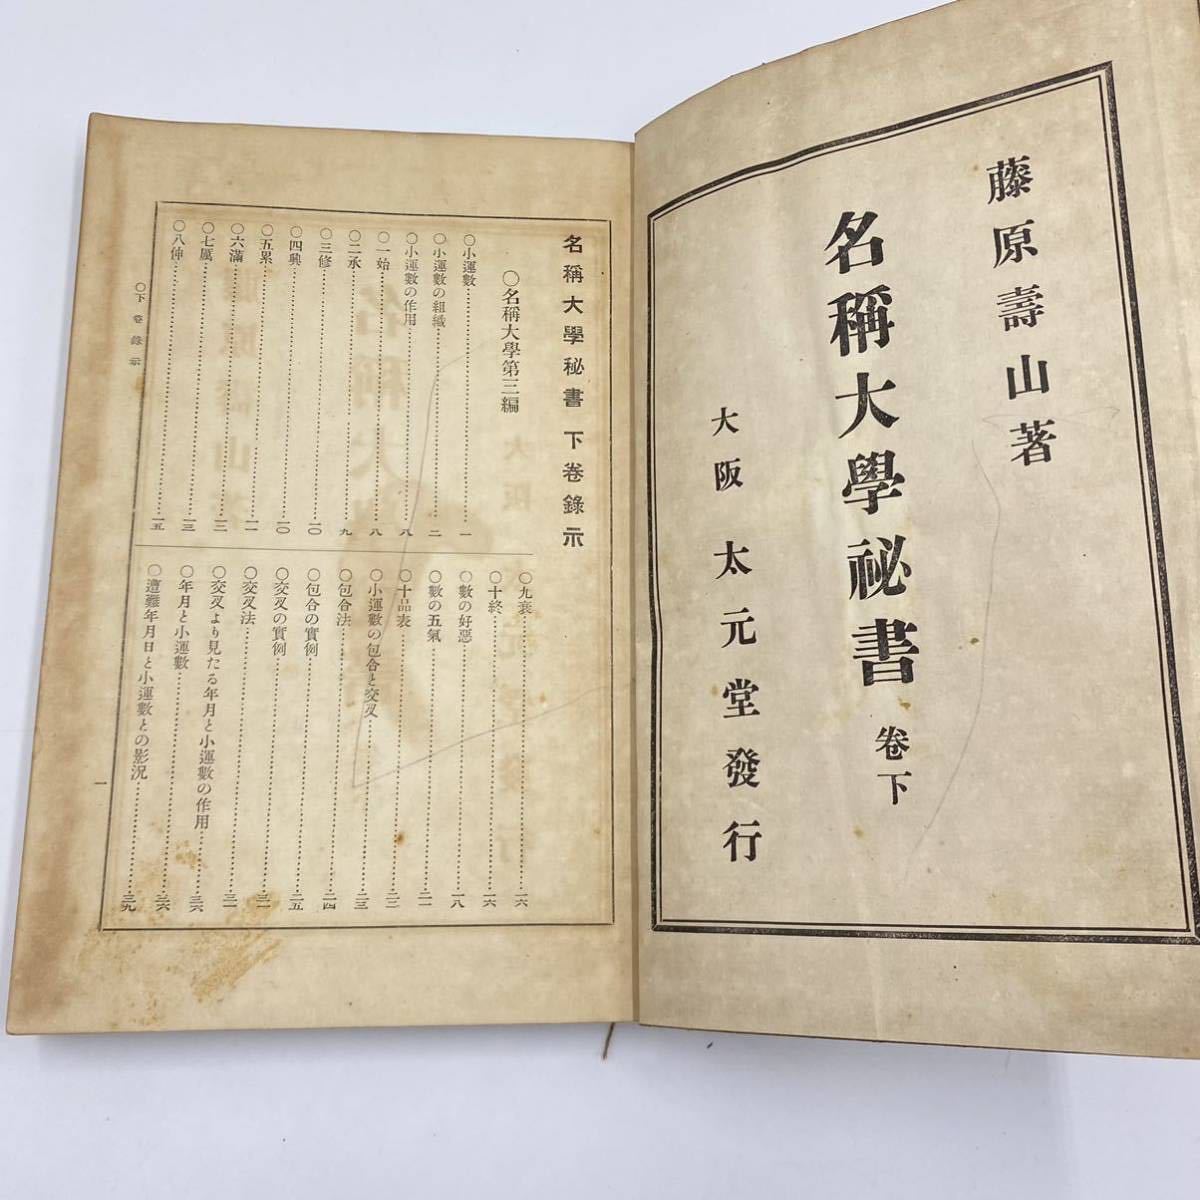 藤原壽山著
名稱大學祕書 卷下
大阪 太元堂發行
名稱大學秘書 下卷錄示
〇名稱大學第三編
〇小運數……一
〇小運數の組織……二
〇小運數の作用……八
〇一始……八
〇二承……九
〇三修……一〇
〇四興……一〇
〇五累……一一
〇六滿……一二
〇七厲……一三
〇八伸……一五
〇九衰……一六
〇十終……一六
〇數の好惡……一八
〇數の五氣……二一
〇十品表……二二
〇小運數の包合と交叉……二三
〇包合法……二四
〇包合の實例……二五
〇交叉の實例……三一
〇交叉法……三一
〇交叉より見たる年月と小運數の作用……三六
〇年月と小運數……三六
〇遭難年月日と小運數との影况……三九
〇下卷錄示
一